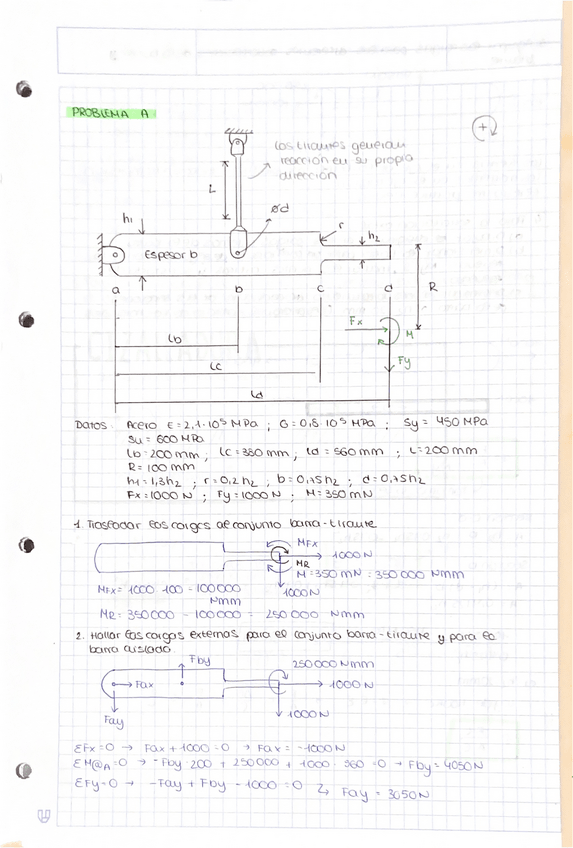 PROBLEMA A
+
Los tirantes generan
reacción en su propia
dirección
L
ød
h1
r
h2
Espesor b
R
a b c d
Fx
M
Fy
lb
lc
ld
Datos: Acero E = 2,1·10⁵ MPa ; G = 0,8·10⁵ MPa ; Sy = 450 MPa
Su = 600 MPa
lb = 200 mm ; lc = 350 mm ; ld = 560 mm ; L = 200 mm
R = 100 mm
h1 = 1,3h2 ; r = 0,2h2 ; b = 0,75h2 ; d = 0,75h2
Fx = 1000 N ; Fy = 1000 N ; M = 350 mN
1. Trasladar las cargas al conjunto barra-tirante
MFx
1000 N
MR
M = 350 mN = 350 000 Nmm
1000 N
MFx = 1000 · 100 = 100 000
Nmm
MR = 350 000 - 100 000 = 250 000 Nmm
2. Hallar las cargas externas para el conjunto barra-tirante y para la
barra aislada.
Fby
250 000 Nmm
Fax
1000 N
Fay
1000 N
ΣFx = 0 → Fax + 1000 = 0 → Fax = -1000 N
ΣM@A = 0 → -Fby · 200 + 250000 + 1000 · 560 = 0 → Fby = 4050 N
ΣFy = 0 → -Fay + Fby - 1000 = 0 ↳ Fay = 3050 N